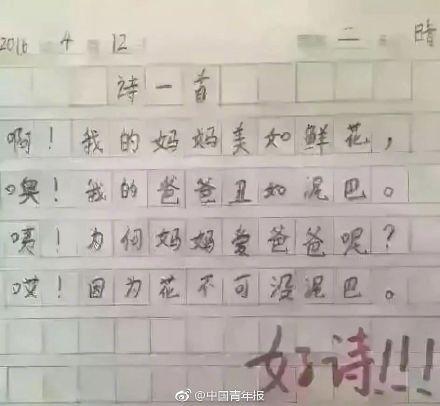 2016 4 12 二 晴
诗一首
啊！我的妈妈美如鲜花，
噢！我的爸爸丑如泥巴。
咦！为何妈妈爱爸爸呢？
哎！因为花不可没泥巴。
好诗!!!
@中国青年报